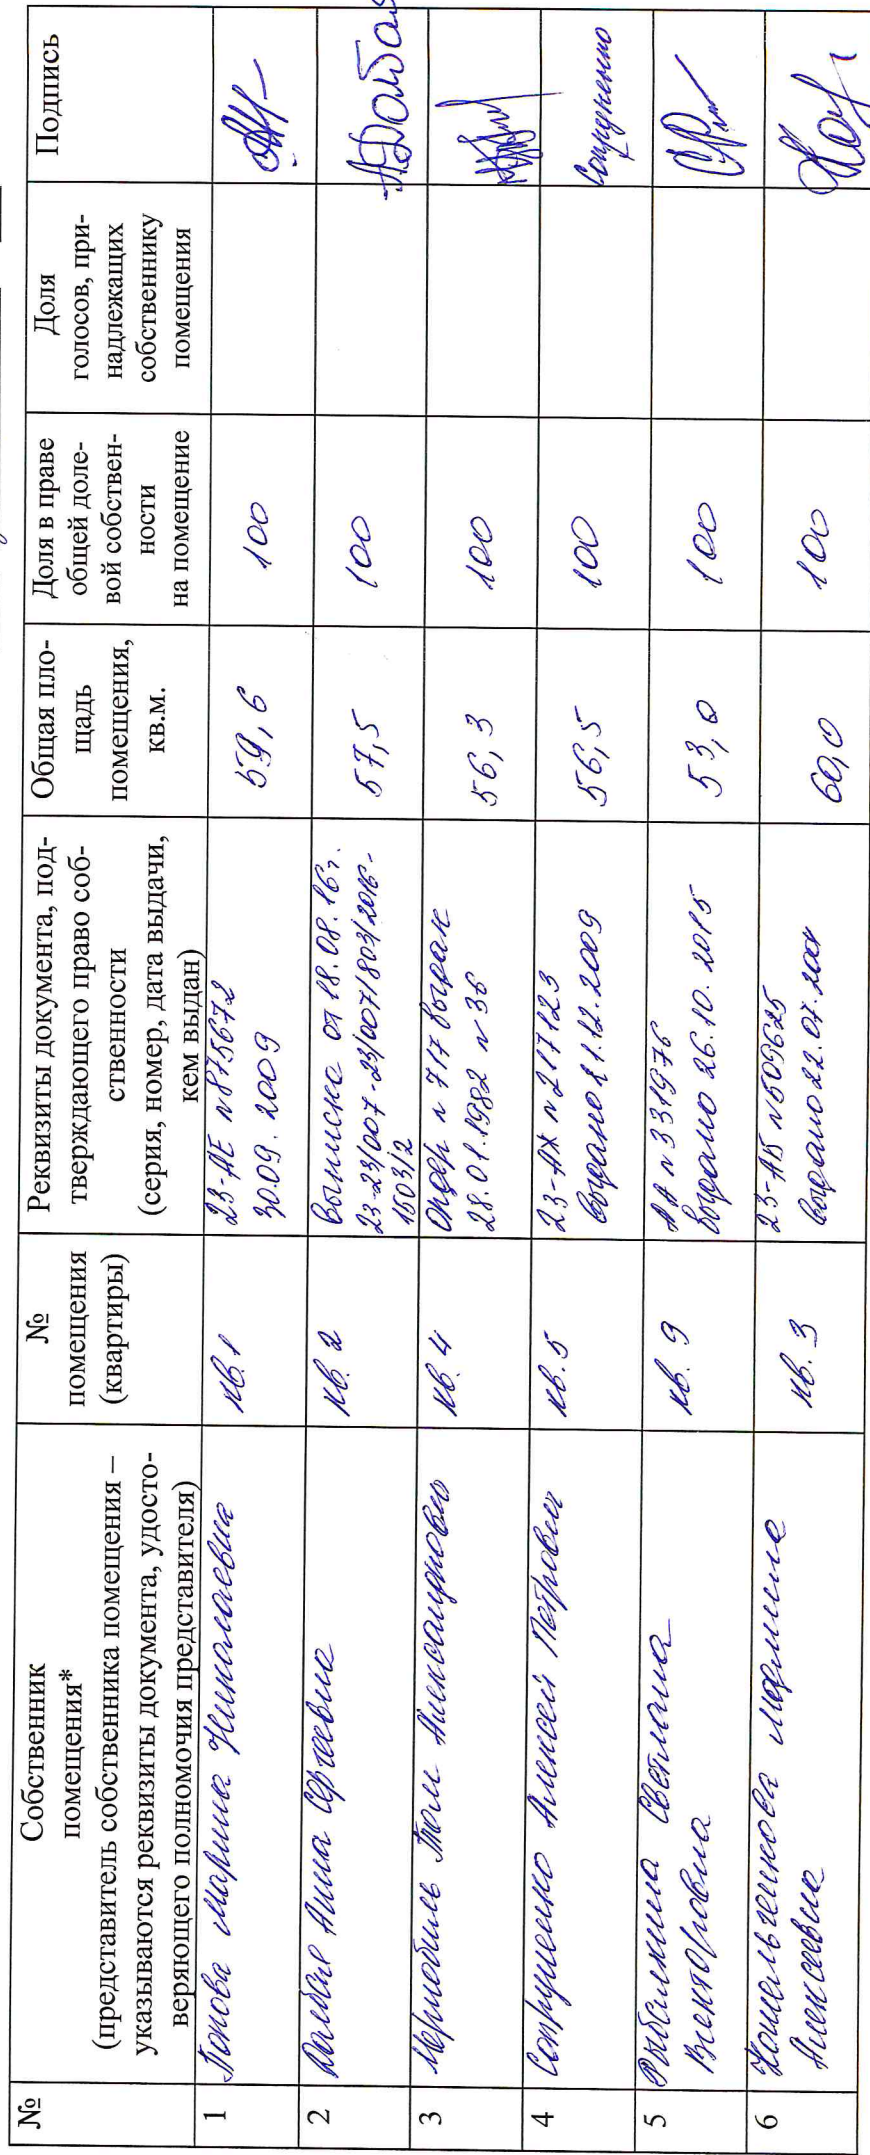 №
Собственник
помещения*
(представитель собственника помещения –
указываются реквизиты документа, удосто-
веряющего полномочия представителя)
№
помещения
(квартиры)
Реквизиты документа, под-
тверждающего право соб-
ственности
(серия, номер, дата выдачи,
кем выдан)
Общая пло-
щадь
помещения,
кв.м.
Доля в праве
общей доле-
вой собствен-
ности
на помещение
Доля
голосов, при-
надлежащих
собственнику
помещения
Подпись
1
Попова Марина Николаевна
кв.1
23-АЕ №875672
30.09.2009
59,6
100
2
Анна Сергеевна
кв. 2
Выписка от 18.08.16г.
23-23/007-23/007/803/2016-
1503/2
57,5
100
3
кв. 4
Ордер №717 выдан
28.01.1982 №36
56,3
100
4
Сопрушенко Алексей Петрович
кв. 5
23-АЖ №217123
выдано 11.12.2009
56,5
100
Сопрушенко
5
Рыбалкина Светлана
Викторовна
кв. 9
АА №331976
выдано 26.10.2015
53,0
100
6
Алексеевна
кв. 3
23-АБ №509625
выдано 22.07
60,0
100